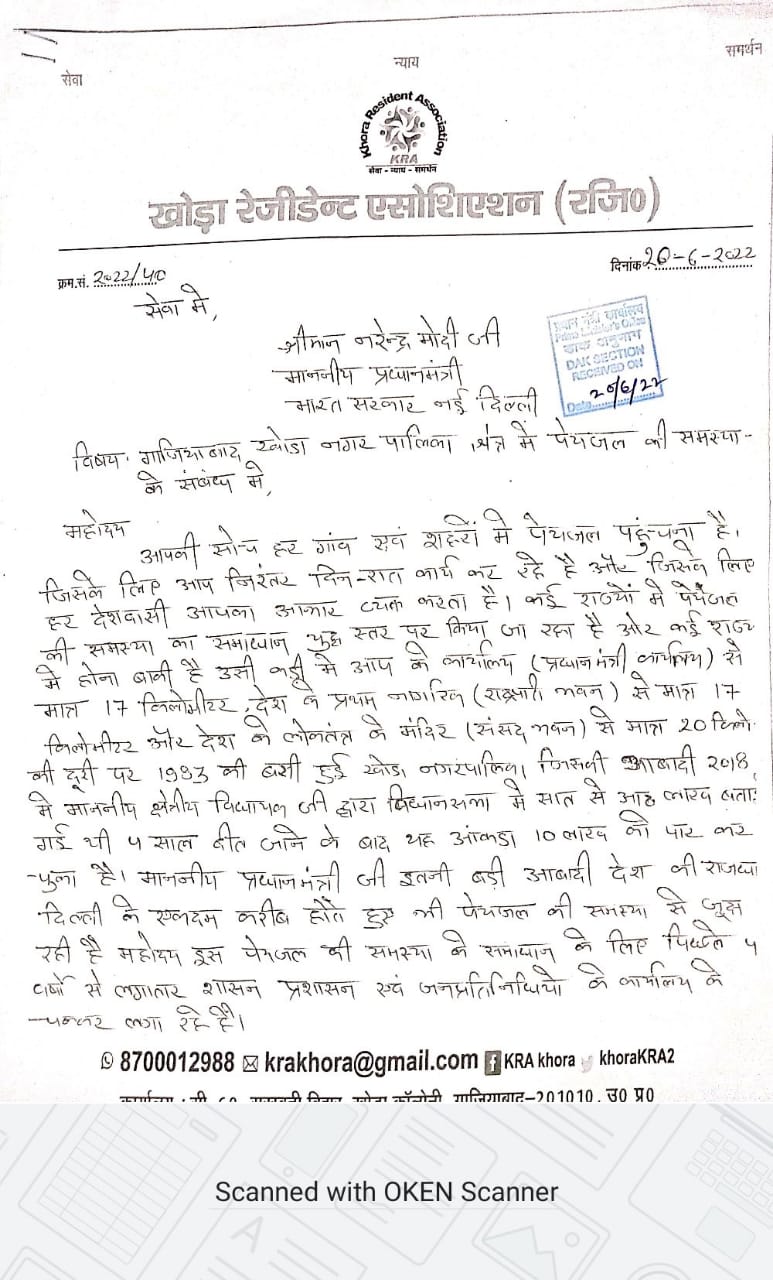 सेवा
न्याय
समर्थन
Khora Resident Association
KRA
सेवा - न्याय - समर्थन
खोड़ा रेजीडेन्ट एसोशिएशन (रजि०)
क्रम.सं. 2022/40
दिनांक 20-6-2022
सेवा मे,
श्रीमान नरेन्द्र मोदी जी
माननीय प्रधानमंत्री
भारत सरकार नई दिल्ली
प्रधान मंत्री कार्यालय
Prime Minister's Office
डाक अनुभाग
DAK SECTION
RECEIVED ON
20/6/22
Date
विषय: गाजियाबाद खोडा नगर पालिका क्षेत्र मे पेयजल की समस्या-
के संबंध मे,
महोदय
आपकी सोच हर गांव एवं शहरों मे पेयजल पहुंचना है।
जिसके लिए आप निरंतर दिन-रात कार्य कर रहे है और जिसके लिए
हर देशवासी आपका आभार व्यक्त करता है। कई राज्यों मे पेयजल
की समस्या का समाधान युद्ध स्तर पर किया जा रहा है और कई राज्य
मे होना बाकी है उसी कड़ी मे आप के कार्यालय (प्रधानमंत्री कार्यालय) से
मात्र 17 किलोमीटर, देश के प्रथम नागरिक (राष्ट्रपति भवन) से मात्र 17
किलोमीटर और देश के लोकतंत्र के मंदिर (संसद भवन) से मात्र 20 किलो
की दूरी पर 1983 की बसी हुई खोडा नगरपालिका जिसकी आबादी 2018
मे माननीय क्षेत्रीय विधायक जी द्वारा विधानसभा मे सात से आठ लाख बता
गई थी 4 साल बीत जाने के बाद यह आंकडा 10 लाख को पार कर
चुका है। माननीय प्रधानमंत्री जी इतनी बड़ी आबादी देश की राजधा
दिल्ली के एकदम करीब होते हुए भी पेयजल की समस्या से जूझ
रही है महोदय इस पेयजल की समस्या के समाधान के लिए पिछले 4
वर्षो से लगातार शासन प्रशासन एवं जनप्रतिनिधियो के कार्यालय के
चक्कर लगा रहे है।
8700012988 krakhora@gmail.com KRA khora khoraKRA2
कार्यालय : खोड़ा कॉलोनी, गाजियाबाद-201010, उ० प्र०
Scanned with OKEN Scanner